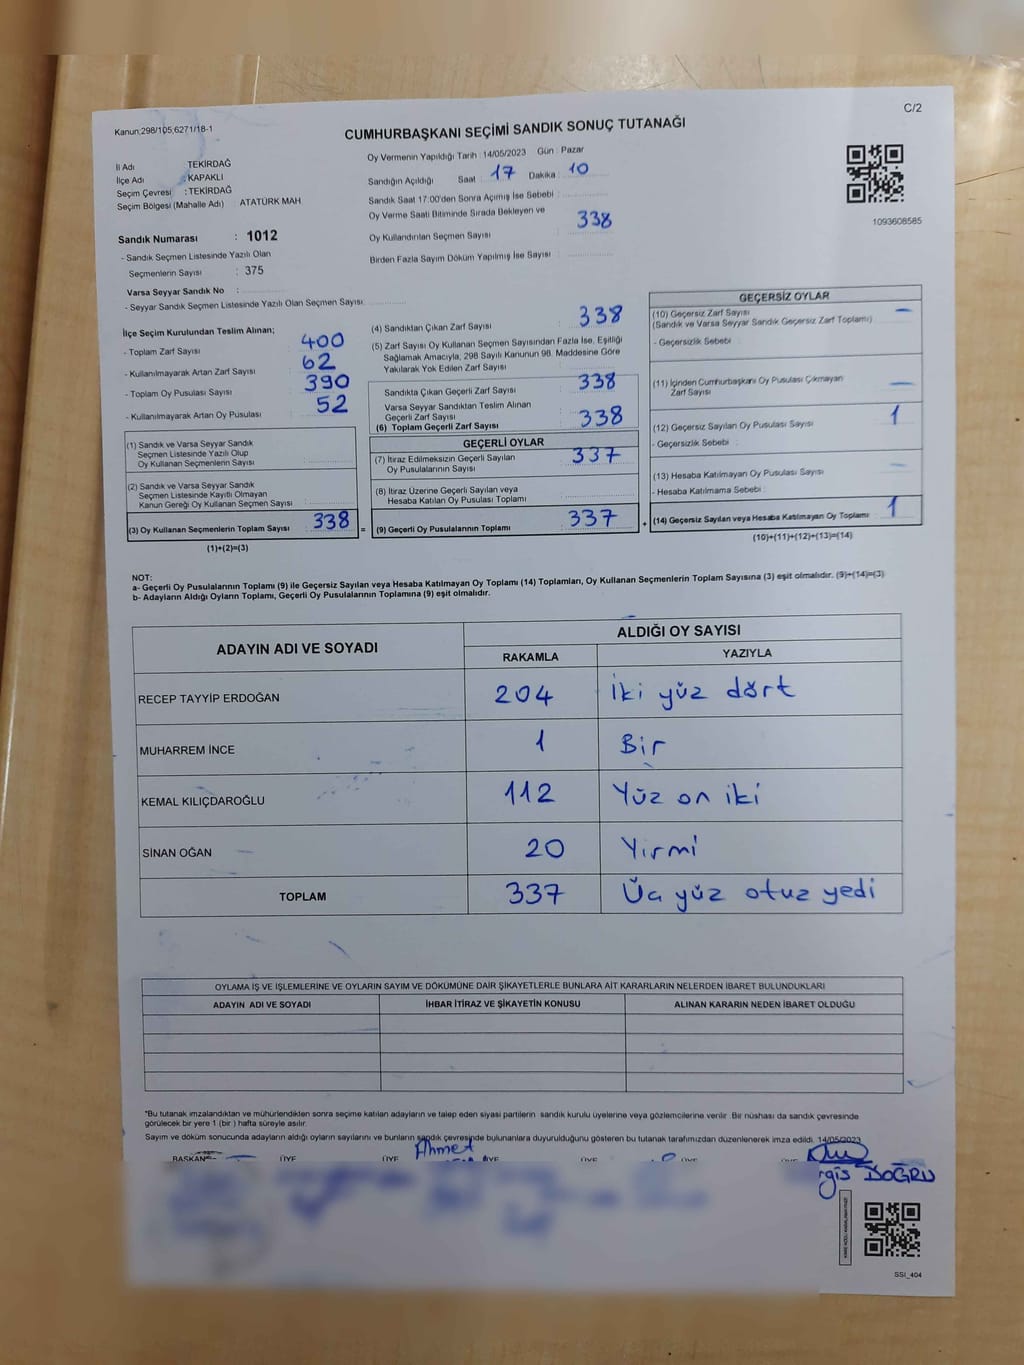 C/2
Kanun:298/105;6271/18-1
CUMHURBAŞKANI SEÇİMİ SANDIK SONUÇ TUTANAĞI
İl Adı TEKİRDAĞ
İlçe Adı : KAPAKLI
Seçim Çevresi : TEKİRDAĞ
Seçim Bölgesi (Mahalle Adı) ATATÜRK MAH
Oy Vermenin Yapıldığı Tarih : 14/05/2023 Gün : Pazar
Sandığın Açıldığı Saat : 17 Dakika : 10
Sandık Saat 17:00'den Sonra Açılmış İse Sebebi :
Oy Verme Saati Bitiminde Sırada Bekleyen ve
Oy Kullandırılan Seçmen Sayısı 338
Birden Fazla Sayım Döküm Yapılmış İse Sayısı
1093608585
Sandık Numarası : 1012
- Sandık Seçmen Listesinde Yazılı Olan
Seçmenlerin Sayısı : 375
Varsa Seyyar Sandık No :
- Seyyar Sandık Seçmen Listesinde Yazılı Olan Seçmen Sayısı
İlçe Seçim Kurulundan Teslim Alınan;
- Toplam Zarf Sayısı 400
- Kullanılmayarak Artan Zarf Sayısı 62
- Toplam Oy Pusulası Sayısı 390
- Kullanılmayarak Artan Oy Pusulası 52
(1) Sandık ve Varsa Seyyar Sandık
Seçmen Listesinde Yazılı Olup
Oy Kullanan Seçmenlerin Sayısı
(2) Sandık ve Varsa Seyyar Sandık
Seçmen Listesinde Kayıtlı Olmayan
Kanun Gereği Oy Kullanan Seçmen Sayısı
(3) Oy Kullanan Seçmenlerin Toplam Sayısı 338 =
(1)+(2)=(3)
(4) Sandıktan Çıkan Zarf Sayısı 338
(5) Zarf Sayısı Oy Kullanan Seçmen Sayısından Fazla İse, Eşitliği
Sağlamak Amacıyla, 298 Sayılı Kanunun 98. Maddesine Göre
Yakılarak Yok Edilen Zarf Sayısı
Sandıkta Çıkan Geçerli Zarf Sayısı 338
Varsa Seyyar Sandıktan Teslim Alınan
Geçerli Zarf Sayısı
(6) Toplam Geçerli Zarf Sayısı 338
GEÇERLİ OYLAR
(7) İtiraz Edilmeksizin Geçerli Sayılan
Oy Pusulalarının Sayısı 337
(8) İtiraz Üzerine Geçerli Sayılan veya
Hesaba Katılan Oy Pusulası Toplamı
(9) Geçerli Oy Pusulalarının Toplamı 337 +
GEÇERSİZ OYLAR
(10) Geçersiz Zarf Sayısı –
(Sandık ve Varsa Seyyar Sandık Geçersiz Zarf Toplamı)
- Geçersizlik Sebebi :
(11) İçinden Cumhurbaşkanı Oy Pusulası Çıkmayan
Zarf Sayısı –
(12) Geçersiz Sayılan Oy Pusulası Sayısı 1
- Geçersizlik Sebebi :
(13) Hesaba Katılmayan Oy Pusulası Sayısı –
- Hesaba Katılmama Sebebi :
(14) Geçersiz Sayılan veya Hesaba Katılmayan Oy Toplamı 1
(10)+(11)+(12)+(13)=(14)
NOT:
a- Geçerli Oy Pusulalarının Toplamı (9) ile Geçersiz Sayılan veya Hesaba Katılmayan Oy Toplamı (14) Toplamları, Oy Kullanan Seçmenlerin Toplam Sayısına (3) eşit olmalıdır. (9)+(14)=(3)
b- Adayların Aldığı Oyların Toplamı, Geçerli Oy Pusulalarının Toplamına (9) eşit olmalıdır.
ADAYIN ADI VE SOYADI ALDIĞI OY SAYISI
RAKAMLA YAZIYLA
RECEP TAYYİP ERDOĞAN 204 İki yüz dört
MUHARREM İNCE 1 Bir
KEMAL KILIÇDAROĞLU 112 Yüz on iki
SİNAN OĞAN 20 Yirmi
TOPLAM 337 Üç yüz otuz yedi
OYLAMA İŞ VE İŞLEMLERİNE VE OYLARIN SAYIM VE DÖKÜMÜNE DAİR ŞİKAYETLERLE BUNLARA AİT KARARLARIN NELERDEN İBARET BULUNDUKLARI
ADAYIN ADI VE SOYADI İHBAR İTİRAZ VE ŞİKAYETİN KONUSU ALINAN KARARIN NEDEN İBARET OLDUĞU
*Bu tutanak imzalandıktan ve mühürlendikten sonra seçime katılan adayların ve talep eden siyasi partilerin sandık kurulu üyelerine veya gözlemcilerine verilir. Bir nüshası da sandık çevresinde
görülecek bir yere 1 (bir) hafta süreyle asılır.
Sayım ve döküm sonucunda adayların aldığı oyların sayılarını ve bunların sandık çevresinde bulunanlara duyurulduğunu gösteren bu tutanak tarafımızdan düzenlenerek imza edildi. 14/05/2023
BAŞKAN ÜYE ÜYE Ahmet ÜYE ÜYE ÜYE ÜYE
DOĞRU
SSI_404